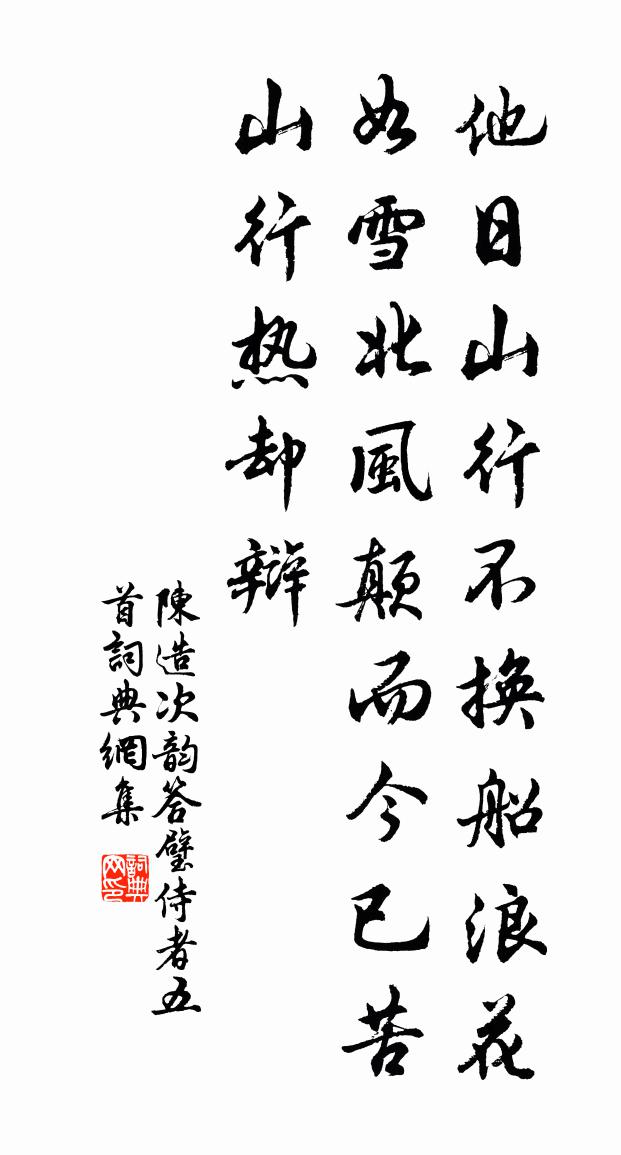 他日山行不换船浪花
如雪北風颠而今已苦
山行热却辩
陳造次韵答璧侍者五
首詞典網集
詞典
网印